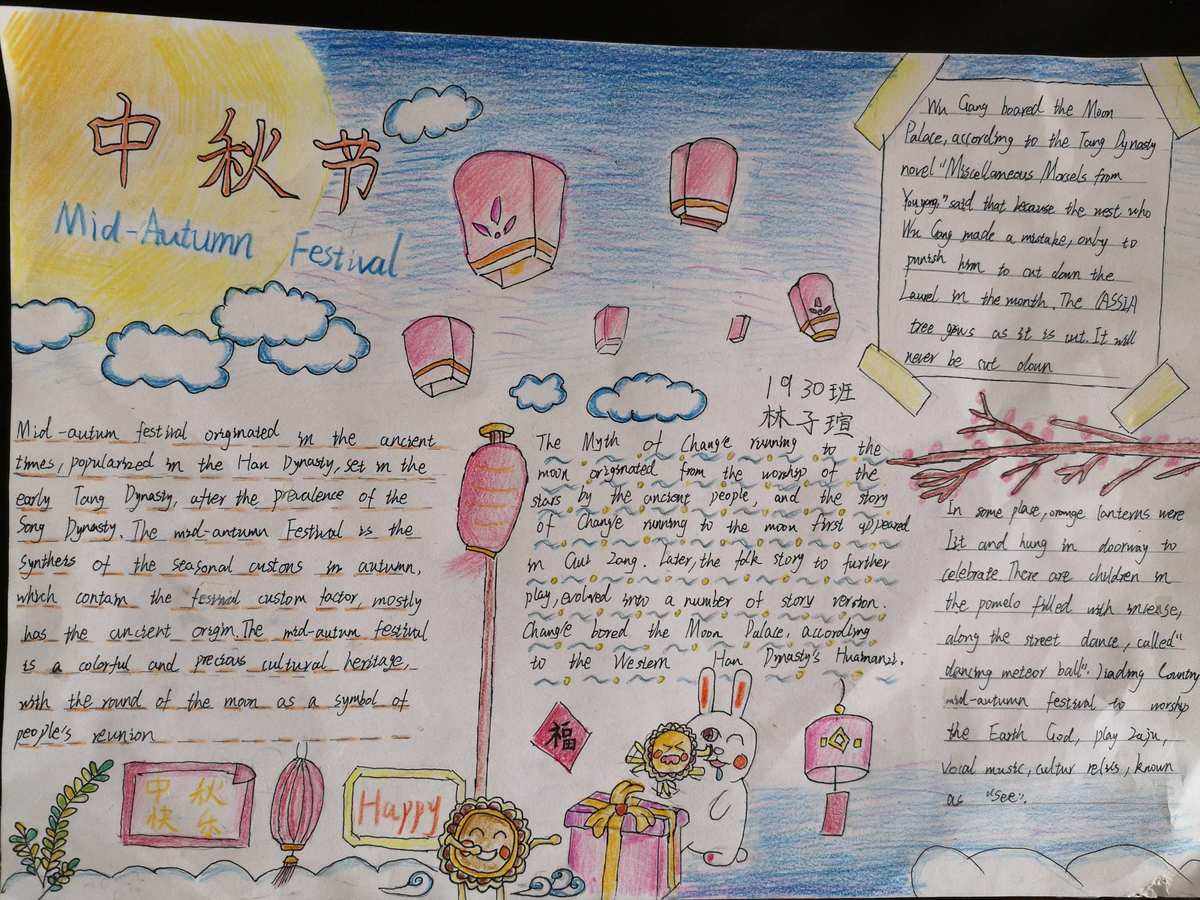 中秋节
Mid-Autumn Festival
Wu Gang boared the Moon
Palace, according to the Tang Dynasty
novel "Miscellaneous Morsels from
Youyang," said that because the west who
Wu Gang made a mistake, only to
punish him to cut down the
Laurel in the month. The CASSIA
tree grows as it is cut. It will
never be cut down
1930班
林子瑄
Mid-autum festival originated in the ancient
times, popularized in the Han Dynasty, set in the
early Tang Dynasty, after the prevalence of the
Song Dynasty. The mid-autumn Festival is the
synthers of the seasonal custons in autumn,
which contain the festival custom factor, mostly
has the ancient origin. The mid-autum festival
is a colorful and precious cultural heritage,
with the round of the moon as a symbol of
people's reunion
The Myth of Change running to the
moon originated from the worship of the
stars by the ancient people, and the story
of Change running to the moon first appeared
in Gui Zang. Later, the folk story to further
play, evolved into a number of story version.
Change bored the Moon Palace, according
to the Western Han Dynasty's Huainanzi.
In some plase, orange lanterns were
list and hung in doorway to
celebrate. There are children in
the pomelo filled with incense,
along the street dance, called"
dancing meteor ball". Jiading Country
mid-autumn festival to worship
the Earth God, play Zaju,
vocal music, cultur relics, known
as "see".
福
中秋
快乐
Happy